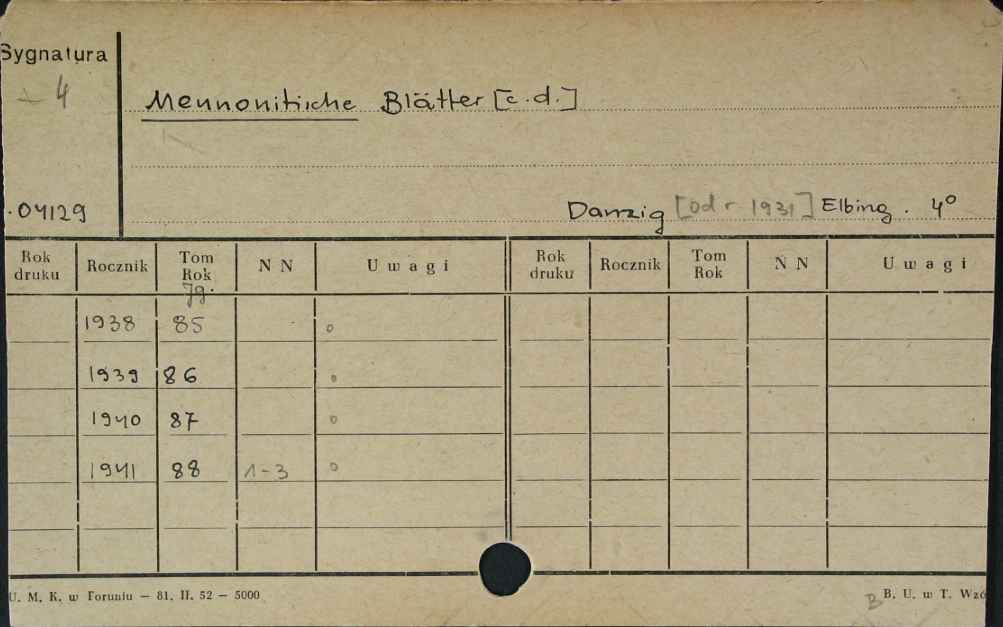 Sygnatura
4
Mennonitische Blätter [c.d.]
.04129
Danzig [od r. 1931] Elbing. 4°
Rok druku Rocznik Tom Rok N N Uwagi Rok druku Rocznik Tom Rok N N Uwagi
Jg.
1938 85 o
1939 86 o
1940 87 o
1941 88 1-3 o
U. M. K. w Toruniu — 81. II. 52 — 5000
B B. U. w T. Wzó